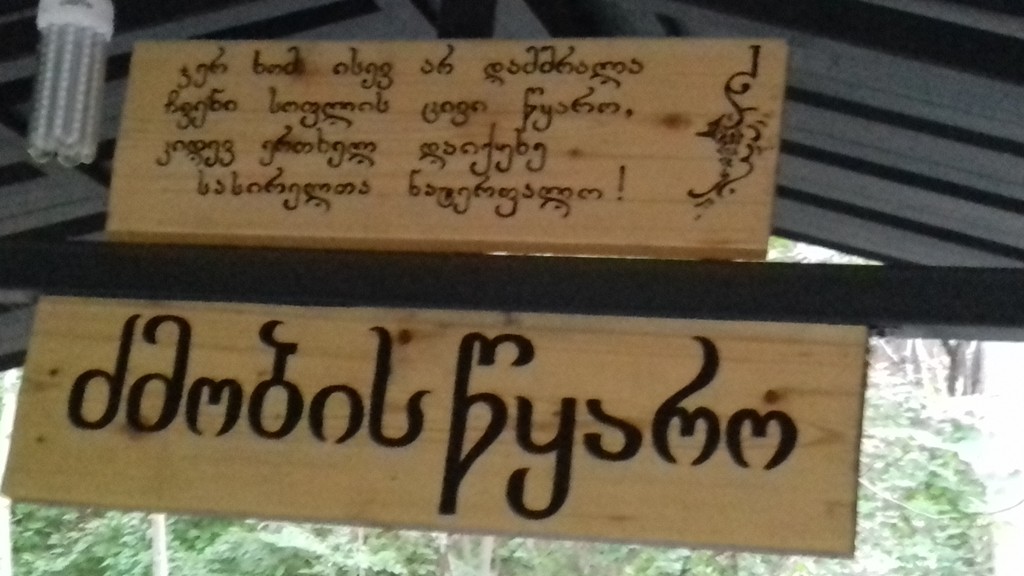 ჯერ ხომ ისევ არ დამშრალა
ჩვენი სოფლის ცივი წყარო,
კიდევ ერთხელ დაიქუხე
სასირელთა ნატერფალო!
ძმობის წყარო